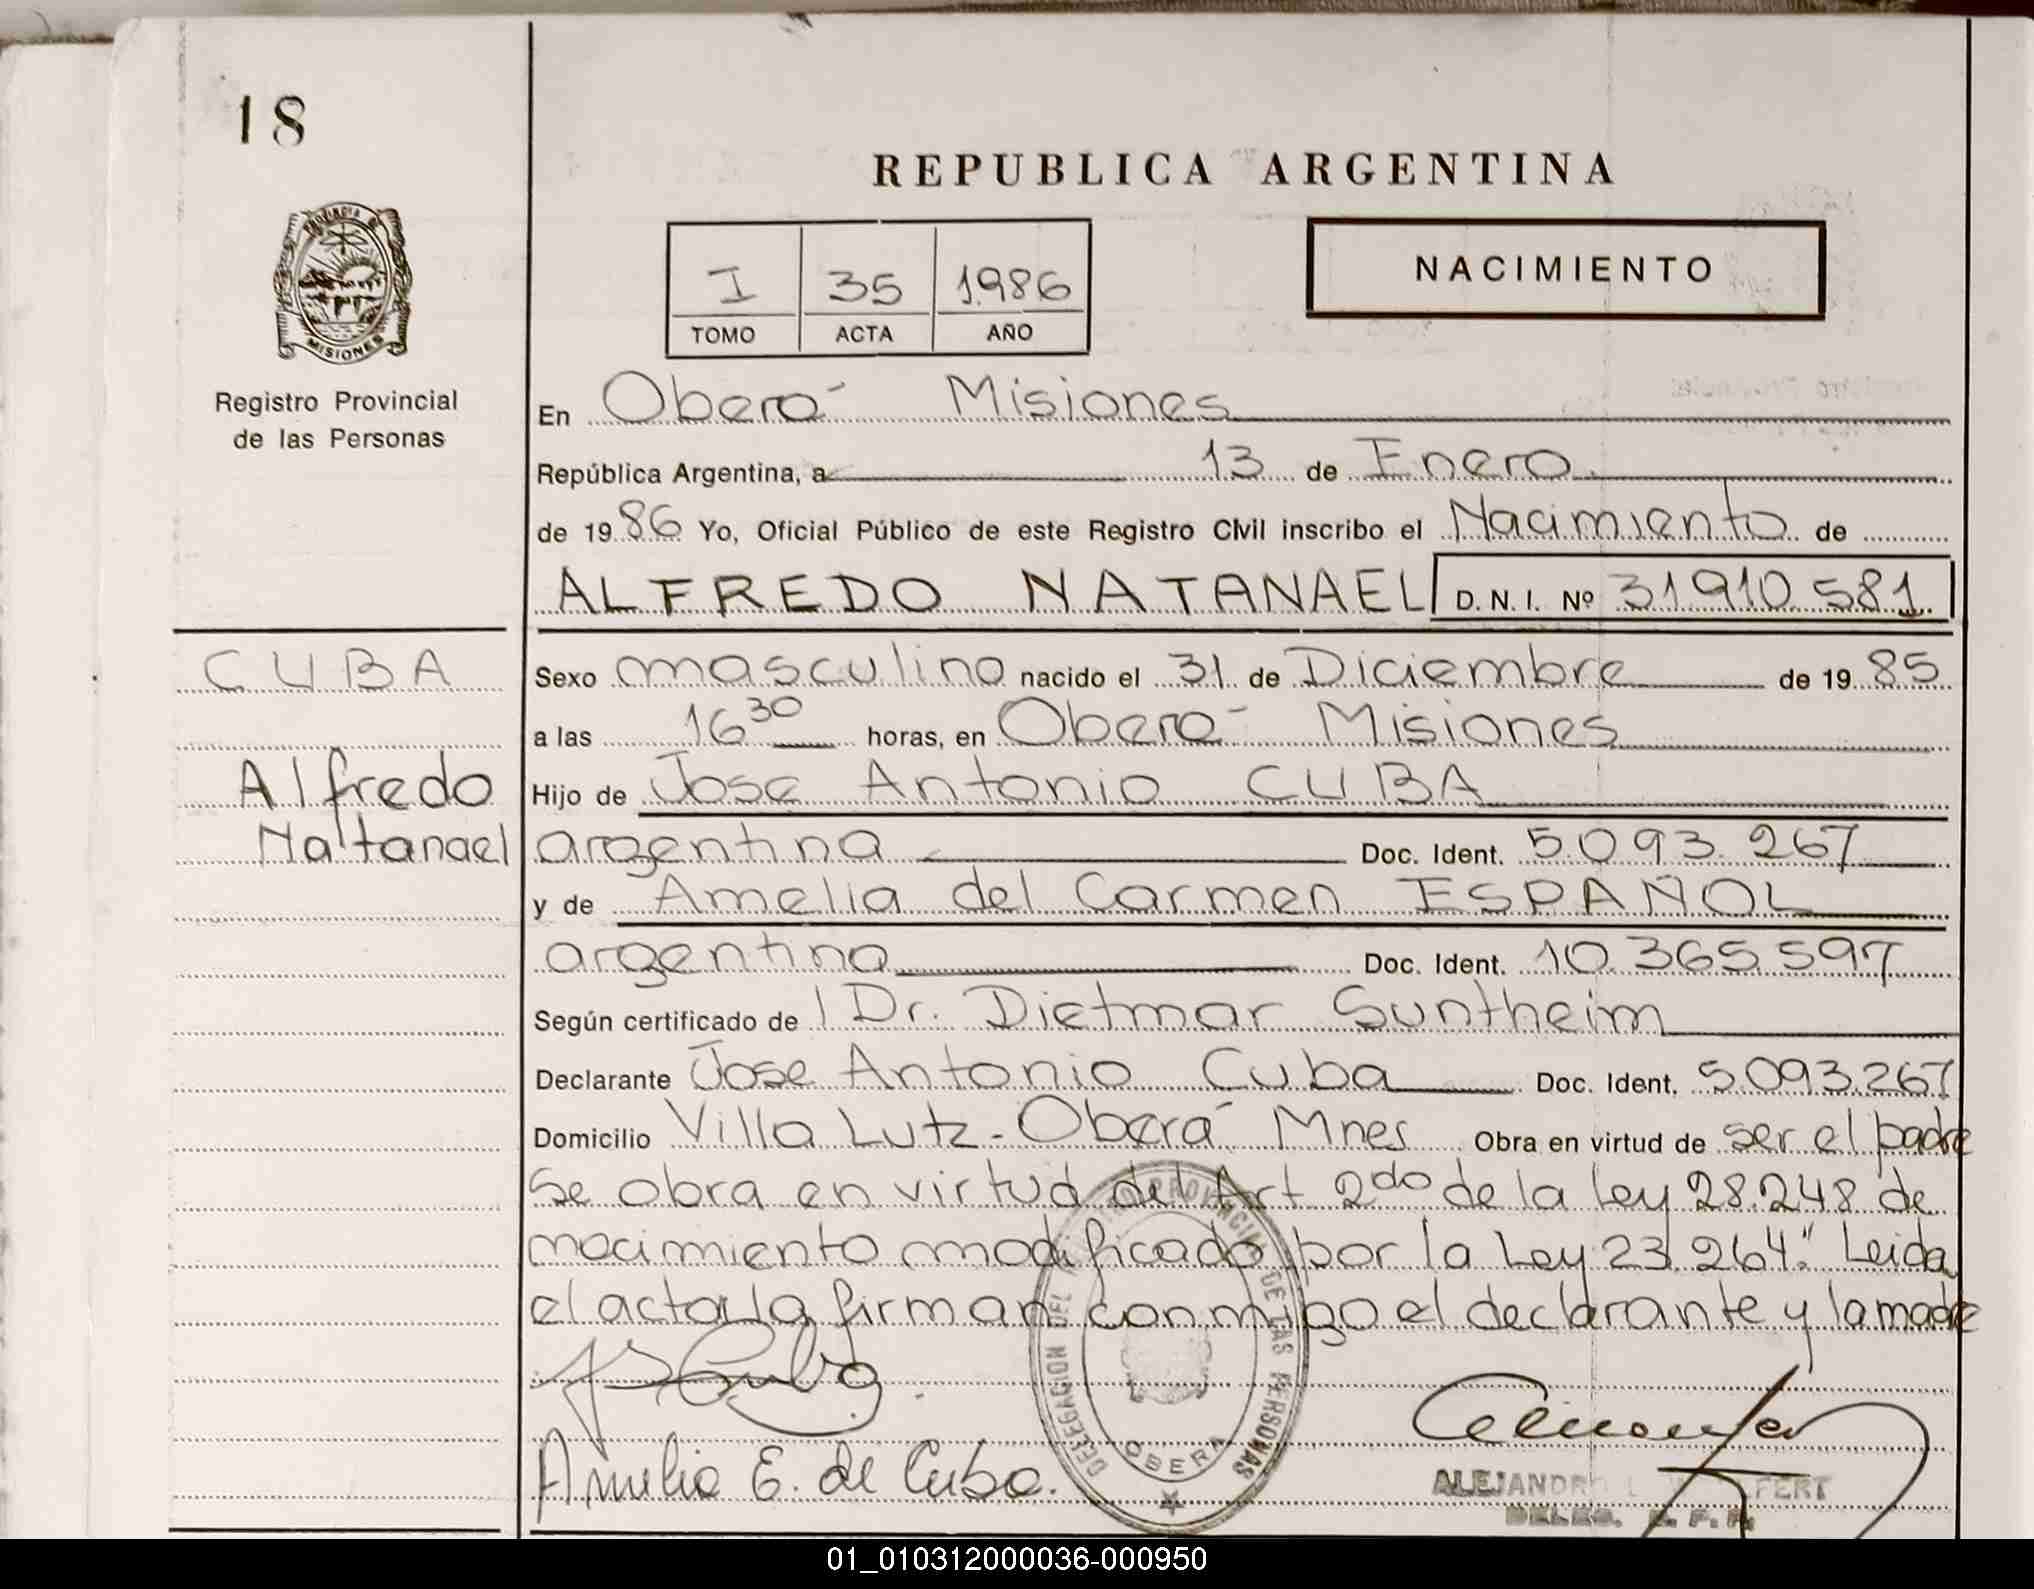 18
REPUBLICA ARGENTINA
PROVINCIA DE
MISIONES
Registro Provincial
de las Personas
I 35 1986
TOMO ACTA AÑO
NACIMIENTO
En Oberá Misiones
República Argentina, a 13 de Enero
de 1986 Yo, Oficial Público de este Registro Civil inscribo el Nacimiento de
ALFREDO NATANAEL D. N. I. Nº 31910.581
CUBA
Alfredo
Natanael
Sexo masculino nacido el 31 de Diciembre de 1985
a las 16 30 horas, en Oberá Misiones
Hijo de Jose Antonio CUBA
argentina Doc. Ident. 5.093.267
y de Amelia del Carmen ESPAÑOL
argentina Doc. Ident. 10.365.597
Según certificado de Dr. Dietmar Suntheim
Declarante Jose Antonio Cuba Doc. Ident. 5.093.267
Domicilio Villa Lutz - Oberá Mnes Obra en virtud de ser el padre
Se obra en virtud del Art 2do de la ley 28.248 de
nacimiento modificado por la Ley 23.264." Leida
el acta la firman conmigo el declarante y la madre
Amelia E. de Cuba.
DELEGACION DEL REGISTRO PROVINCIAL DE LAS PERSONAS
OBERA
ALEJANDRO
DELEG.
01_010312000036-000950